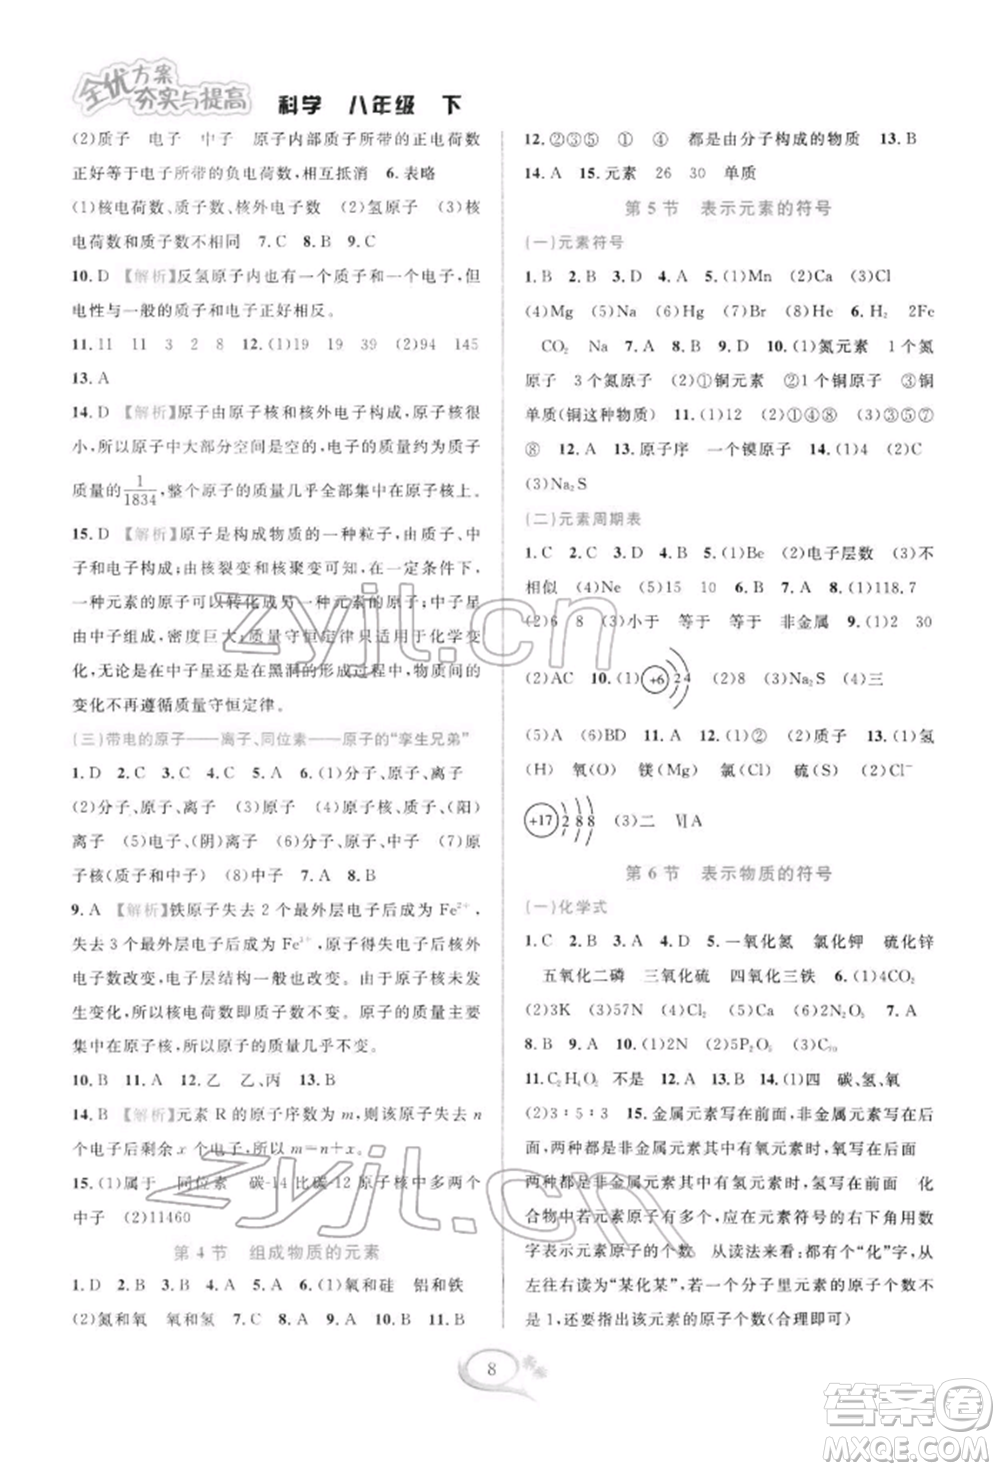 全优方案
夯实与提高 科学 八年级 下
(2)质子 电子 中子 原子内部质子所带的正电荷数
正好等于电子所带的负电荷数,相互抵消 6.表略
(1)核电荷数、质子数、核外电子数 (2)氢原子 (3)核
电荷数和质子数不相同 7.C 8.B 9.C
10.D 【解析】反氢原子内也有一个质子和一个电子,但
电性与一般的质子和电子正好相反。
11.11 11 3 2 8 12.(1)26 39 (2)94 145
13.A
14.D 【解析】原子由原子核和核外电子构成,原子核很
小,所以原子中大部分空间是空的,电子的质量约为质子
质量的1/1834,整个原子的质量几乎全部集中在原子核上。
15.D 【解析】原子是构成物质的一种粒子,由质子、中
子和电子构成;由核裂变和核聚变可知,在一定条件下,
一种元素的原子可以转化成另一种元素的原子;中子星
由中子组成,密度巨大;质量守恒定律只适用于化学变
化,无论是在中子星还是在黑洞的形成过程中,物质间的
变化不再遵循质量守恒定律。
(三)带电的原子——离子、同位素——原子的“孪生兄弟”
1.D 2.C 3.C 4.A 5.B 6.(1)分子、原子、离子
(2)分子、原子、离子 (3)原子 (4)原子、分子、(阳)
离子 (5)电子、(阴)离子 (6)分子、原子 (7)中子、原
子核(质子和中子) (8)中子 7.B 8.C
9.A 【解析】铁原子失去 2 个最外层电子后成为 Fe²⁺,
失去 3 个最外层电子后成为 Fe³⁺,原子得失电子后核外
电子数改变,电子层结构一般也改变。由于原子核没有变
化,所以核电荷数即质子数不变。原子的质量主要
集中在原子核,所以原子的质量几乎不变。
10.B 11.A 12.乙 乙、丁 13.B
14.B 【解析】元素 R 的原子序数为 m,则该原子失去 n
个电子后剩余 x 个电子,所以 m=n+x。
15.(1)属于 同位素 碳-14 比碳-12 原子核中多两个
中子 (2)11460
第 4 节 组成物质的元素
1.D 2.B 3.C 4.A 5.A 6.(1)氧和硅 铝和铁
(2)氮和氧 氧和氢 7.C 8.C 9.B 10.D 11.B
12.②③⑤ ① ④ 都是由分子构成的物质 13.B
14.A 15.元素 26 30 单质
第 5 节 表示元素的符号
(一)元素符号
1.B 2.B 3.D 4.A 5.(1)Mn (2)Ca (3)Cl
(4)Mg (5)Na (6)Hg (7)Br (8)He 6.H₂ 2Fe
CO₂ Na 7.A 8.B 9.D 10.(1)氮元素 1个氮
原子 3个氮原子 (2)①铜元素 ②1个铜原子 ③铜
单质(铜这种物质) 11.(1)②④ (2)①④⑧ (3)③⑤⑦
⑧ 12.A 13.原子序 一个镆原子 14.(1)4 (2)C
(3)Na₂S
(二)元素周期表
1.C 2.C 3.B 4.B 5.(1)Be (2)电子层数 (3)不
相似 (4)Ne (5)15 10 6.B 7.A 8.(1)118,7
(2)6 8 (3)小于 等于 等于 非金属 9.(1)2 30
(2)AC 10.(1)+6 2 4 (2)8 (3)Na₂S (4)三
(5)A (6)BD 11.A 12.(1)② (2)质子 13.(1)氢
(H) 氧(O) 镁(Mg) 氯(Cl) 硫(S) (2)Cl⁻
+17 2 8 8 (3)二 ⅥA
第 6 节 表示物质的符号
(一)化学式
1.C 2.B 3.A 4.A 5.一氧化氮 氯化钾 硫化锌
五氧化二磷 三氧化硫 四氧化三铁 6.(1)4CO₂
(2)3K (3)57N (4)Cl₂ (5)Ca 7.A
8.B 9.A 10.(1)2N (2)5P₂O₅ (3)C₇₀
11.C₂H₆O₂ 不是 12.A 13.B 14.(1)四 碳、氢、氧
(2)3∶5∶3 15.金属元素写在前面,非金属元素写在后
面,两种都是非金属元素且其中有氧元素的,氧写在后面
两种都是非金属元素且其中有氢元素的,氢写在前面 化
合物中元素原子有多个时,应在元素符号的右下角用数
字表示元素原子的个数 从读法看,凡出现“化”字,应
从左往右读为“某化某”;若一个分子里元素的原子个数不
是 1,还要指出该元素的原子个数(合理即可)
8
zyjl.cn
zyjl.cn
答案圈
MXQE.COM